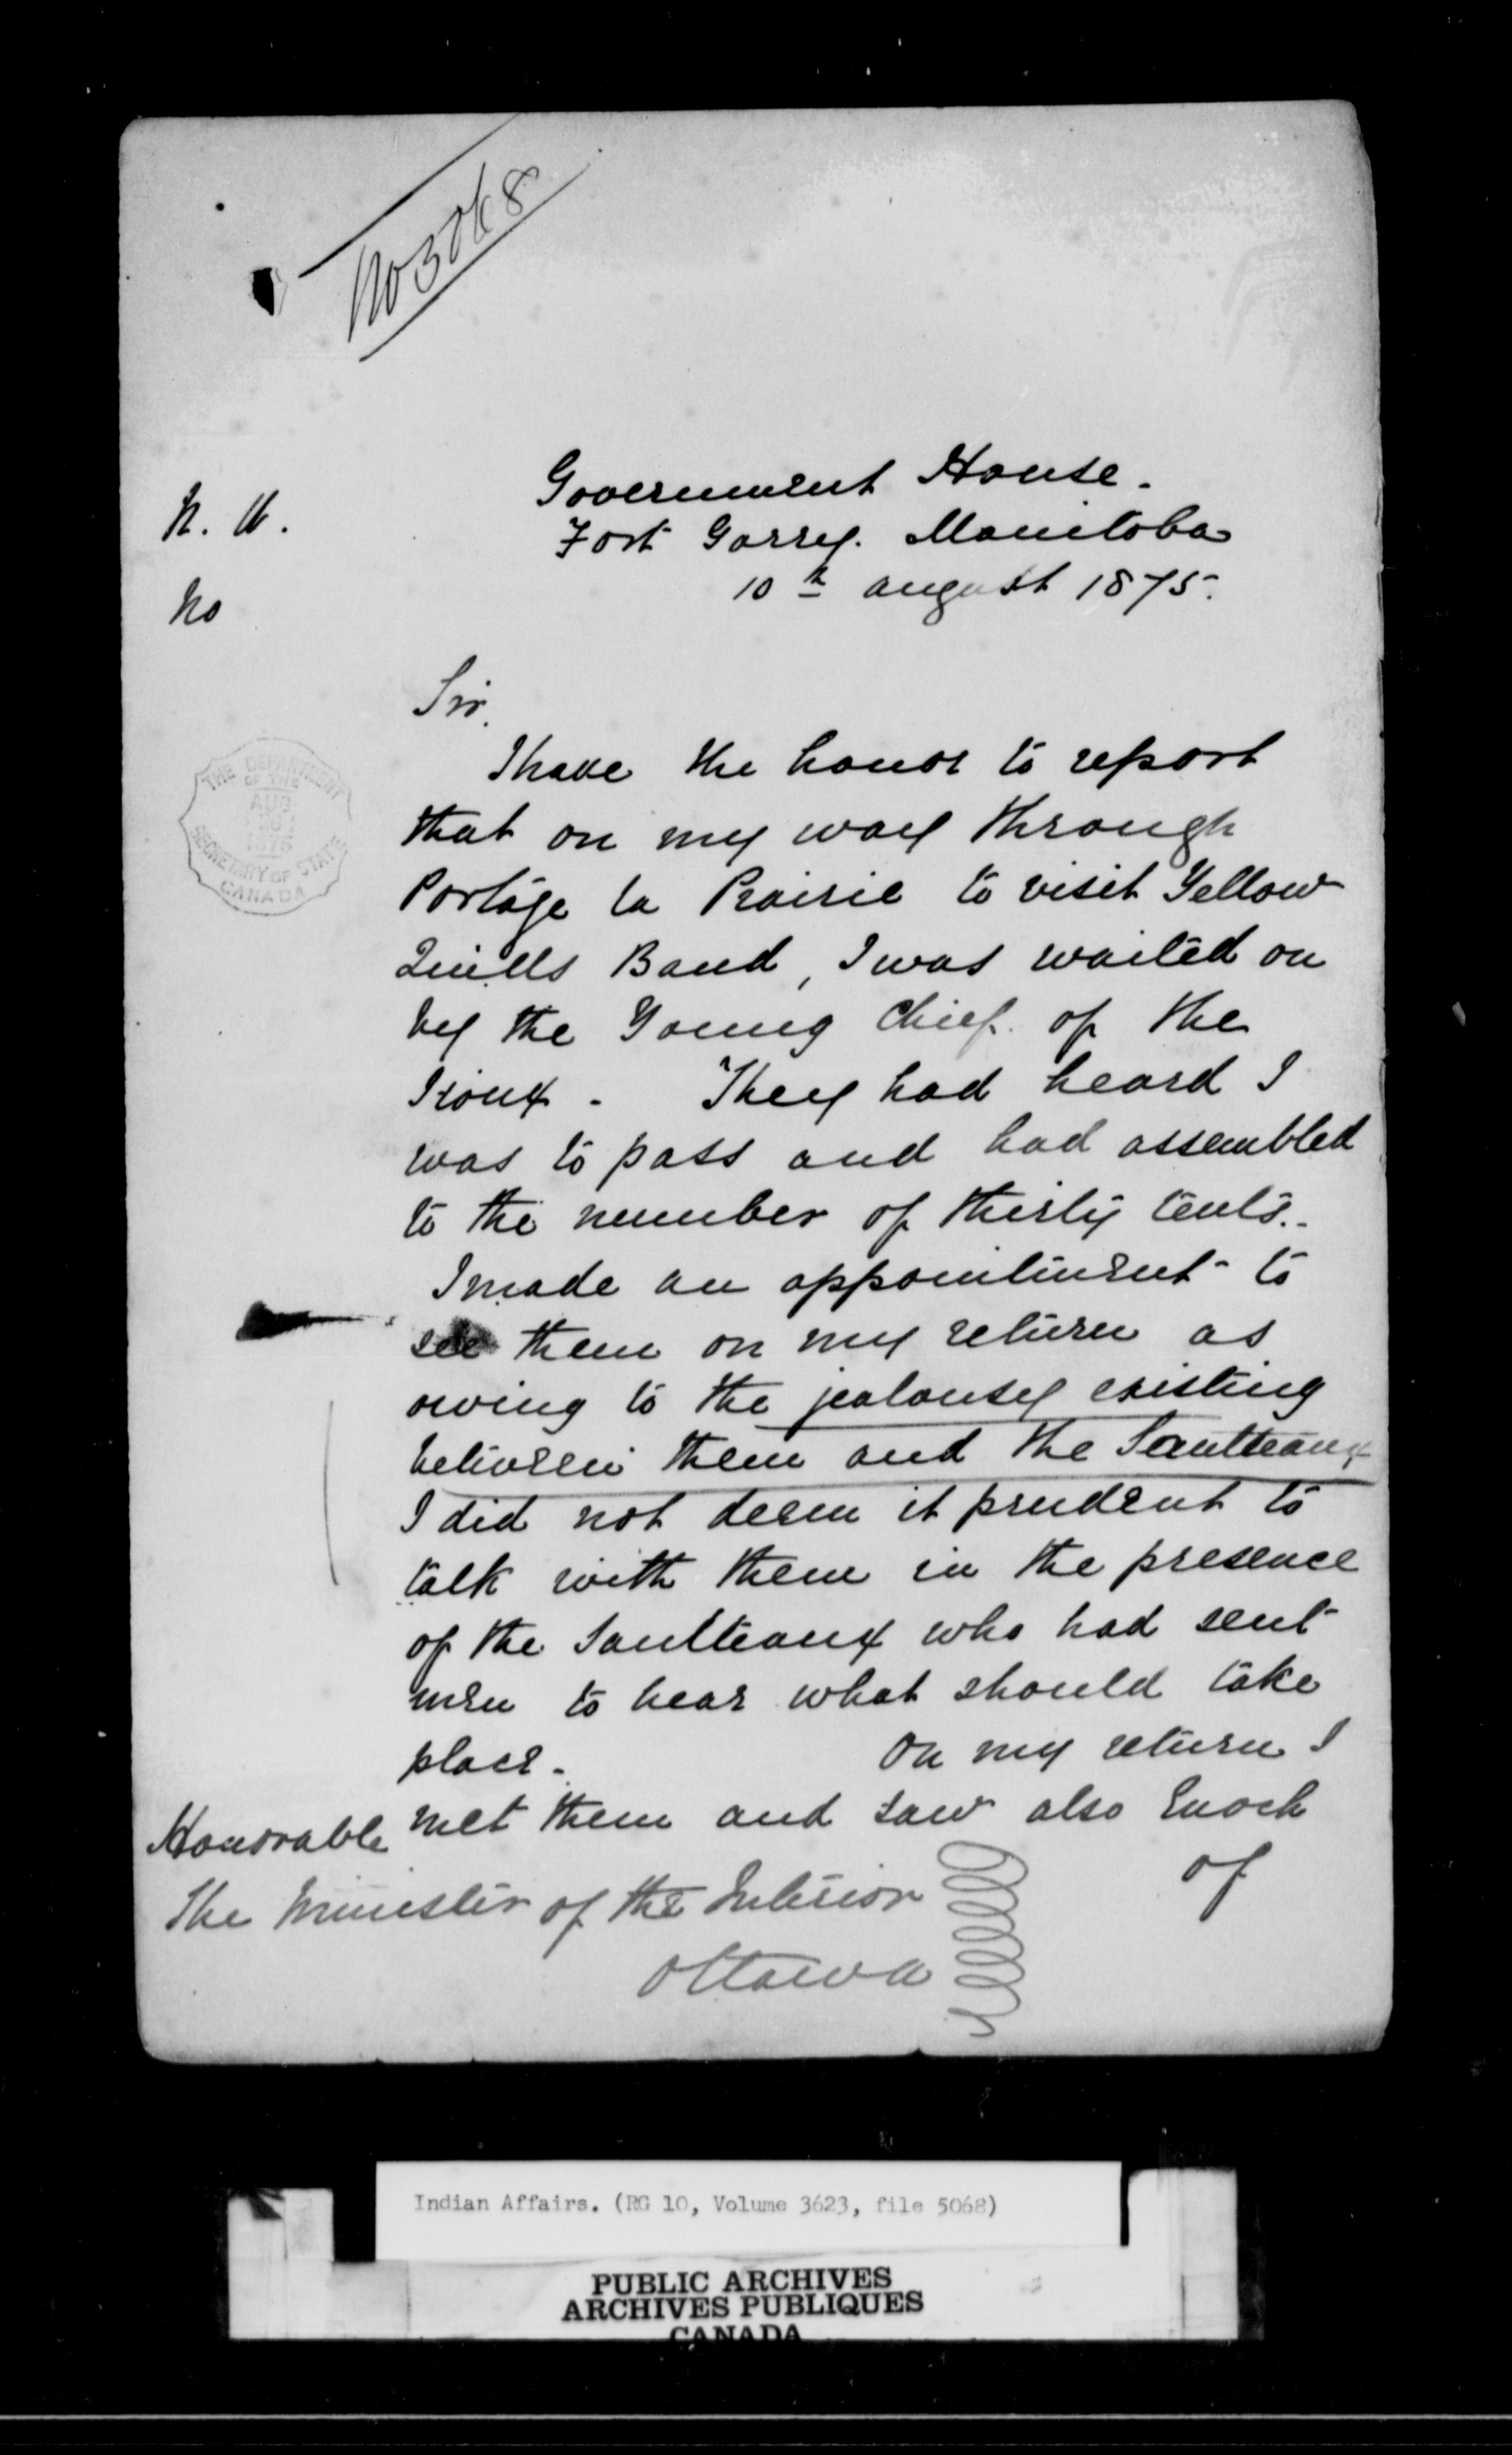 No 5068
Government House.
Fort Garry. Manitoba
10th august 1875.
N. W.
No
THE DEPARTMENT
OF THE
AUG
1875
SECRETARY OF STATE
CANADA
Sir,
I have the honor to report
that on my way through
Portage la Prairie to visit Yellow
Quills Band, I was waited on
by the Young Chief. of the
Sioux - They had heard I
was to pass and had assembled
to the number of thirty tents.-
I made an appointment to
see them on my return as
owing to the jealousy existing
between them and the Saulteaux
I did not deem it prudent to
talk with them in the presence
of the Saulteaux who had sent
men to hear what should take
place - On my return I
met them and saw also Enoch
of
Honorable
The Minister of the Interior
Ottawa
Indian Affairs. (RG 10, Volume 3623, file 5068)
PUBLIC ARCHIVES
ARCHIVES PUBLIQUES
CANADA